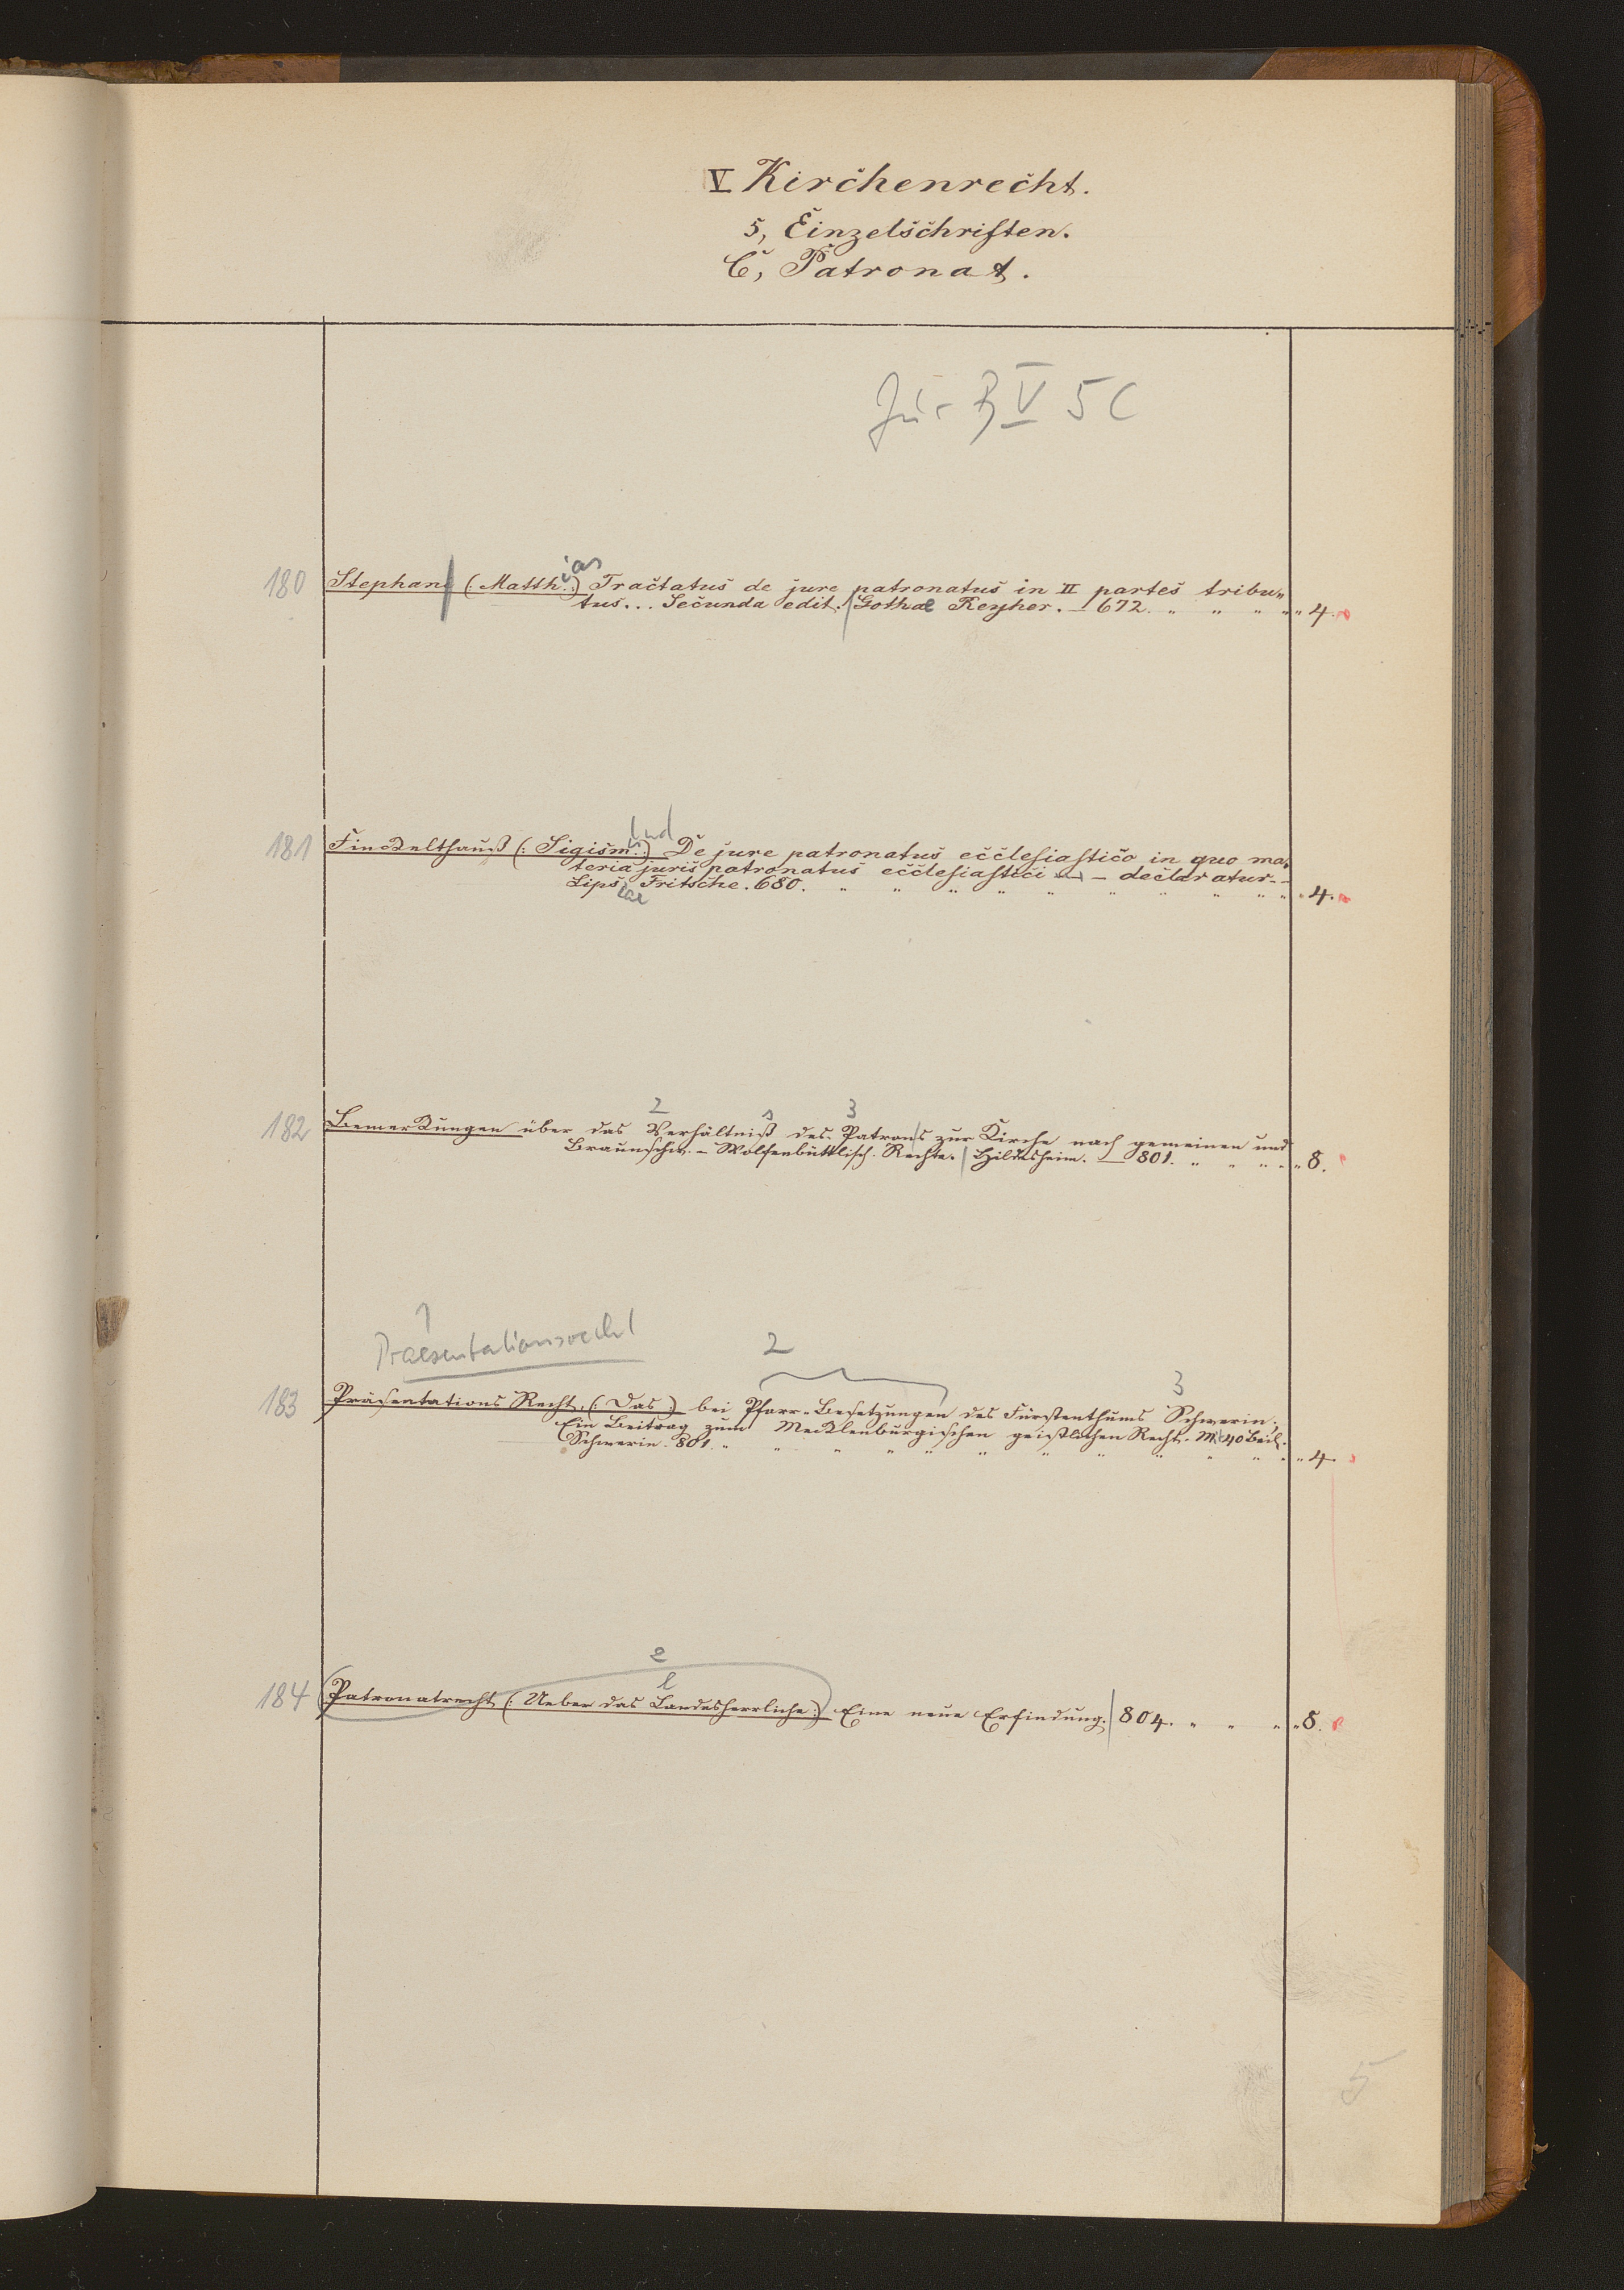 V Kirchenrecht.
5, Einzelschriften.
C, Patronat.
Jur B V 5 C
180 Stephani (: Matth. :) ias Tractatus de jure patronatus in II partes tribu„
tus... Secunda edit. Gothae Reyher. — 672. „ „ „ „ „ 4.
181 Finckelthauß (: Sigism. :) und De jure patronatus ecclesiastico in quo ma„
teria juris patronatus ecclesiastici — declaratur. -
Lips. iae Fritsche. 680. „ „ „ „ „ „ „ „ „ „ „ 4.
2 3
182 Bemerkungen über das Verhältniß des Patrons zur Kirche nach gemeinen und
Braunschw. - Wolfenbüttlisch. Rechte. Hildesheim. — 801. „ „ „ „ „ 8.
Praesentationsrecht
2 3
183 Präsentations Recht. (: Das :) bei Pfarr-Besetzungen des Fürstenthums Schwerin.
Ein Beitrag zum Mecklenburgischen geistlichen Recht. M. 40 Beil.
Schwerin. 801. „ „ „ „ „ „ „ „ „ „ „ „ 4.
e
l
184 Patronatrecht (: Ueber das Landesherrliche :) Eine neue Erfindung. 804. „ „ „ „ 8.
5